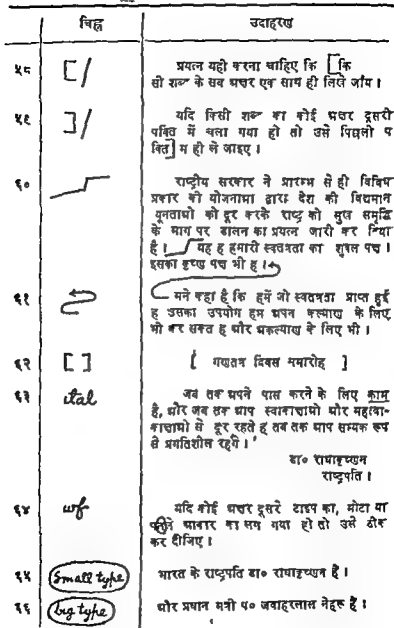 चिह्न उदाहरण
५८ [/ प्रयत्न यही करना चाहिए कि [कि
सी शब्द के सब अक्षर एक साथ ही लिखे जाँय।
५९ ]/ यदि किसी शब्द का कोई अक्षर दूसरी
पंक्ति में चला गया हो तो उसे पिछली प
क्ति] म ही ले आइए।
६० राष्ट्रीय सरकार ने प्रारम्भ से ही विविध
प्रकार की योजनाओ द्वारा देश की विद्यमान
यूनताओ को दूर करके राष्ट्र को सुख समृद्धि
के माग पर डालन का प्रयत्न जारी कर दिया
है। यह ह हमारी स्वतत्रता का शुक्ल पक्ष।
इसका कृष्ण पक्ष भी ह।
६१ मने कहा है कि हमें जो स्वतत्रता प्राप्त हुई
ह उसका उपयोग हम अपन कल्याण के लिए
भी कर सकत ह और अकल्याण के लिए भी।
६२ [ ] [ गणतत्र दिवस समारोह ]
६३ ital जब तक अपने पास करने के लिए काम
है, और जब तक आप स्वाकाक्षाओ और महत्वा-
काक्षाओ से दूर रहते ह तब तक आप सम्यक रूप
से प्रगतिशील रहेंगे।'
डा० राधाकृष्णन
राष्ट्रपति।
६४ wf यदि कोई अक्षर दूसरे टाइप का, मोटा या
आकार का लग गया हो तो उसे ठीक
कर दीजिए।
६५ (Small type) भारत के राष्ट्रपति डा० राधाकृष्णन है।
६६ (big type) और प्रधान मत्री प० जवाहरलाल नेहरू है।